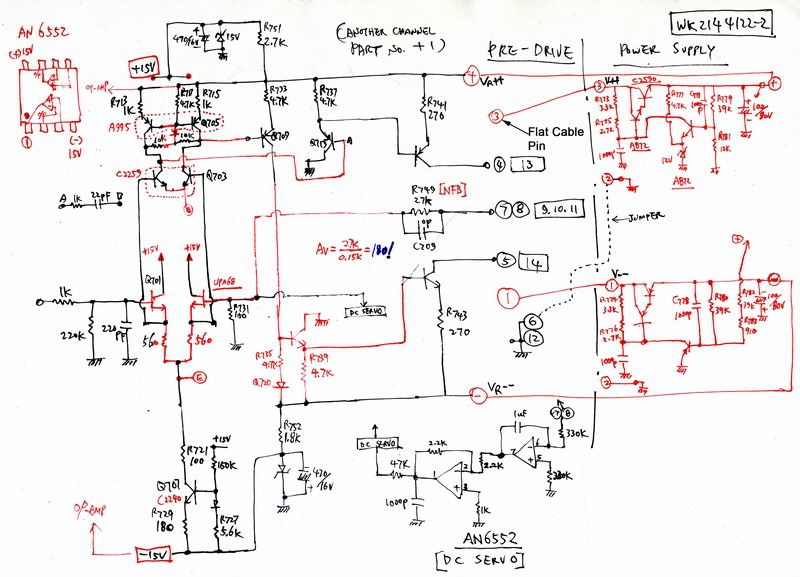 AN 6552
(+)15V
①
(-)
15V
OP-AMP
+15V
470/16V
15V
R751
2.7K
(ANOTHER CHANNEL
PART No. +1)
PRE-DRIVE
POWER SUPPLY
WK2144122-2
R713
1K
R711
47K
R715
1K
A995
Q705
10K
10K
R733
4.7K
Q709
R737
4.7K
Q713
A
R741
270
④ 13
+
VR++
③
Flat Cable
Pin
③
V++
C2590
R773
3.3K
R775
2.7K
1000p
AB72
R777
4.7K
12V
AB72
R779
39K
R781
12K
100/80V
+
②
JUMPER
C2259
Q703
B
A
1K
22pF
B
R749 [NFB]
27K
10p
C709
⑦ ⑧ 9, 10, 11
AV = 27K/0.15K = 180!
+15V
+15V
Q701
UPA68
1K
220K
220PF
560
560
R731
100
DC SERVO
⑤ 14
R743
270
①
⑥
⑫
V--
①
R774
3.3K
R776
2.7K
1000p
②
C778
1000p
R780
39K
R782
39K
R783
910
100/80V
+
−
E
R735
47K
Q720
R739
4.7K
VR--
−
R752
1.8K
470/16V
R721
100
+15V
150K
Q707
C2240
R729
180
R727
5.6K
OP-AMP
-15V
DC SERVO
47K
1000p
2.2K
1
2
3
1K
2.2K
1uF
7
6
5
⑦ ⑧
330K
330K
AN6552
[DC SERVO]